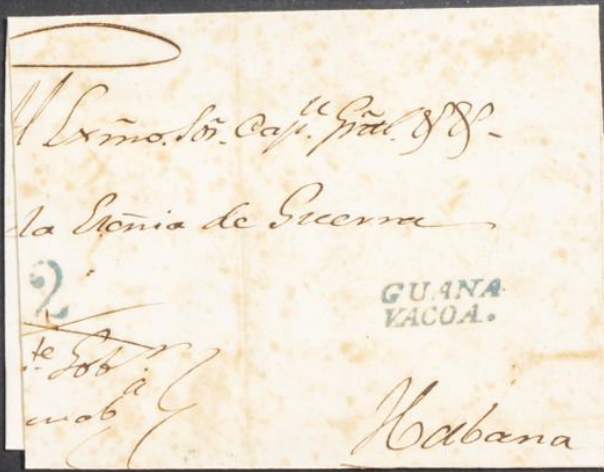 Al Exmõ. Sõr. Capⁿ. Grãl. &&.
la Escñia de Guerra
2
GUANA
VACOA.
te Gobr
a
nab
Habana